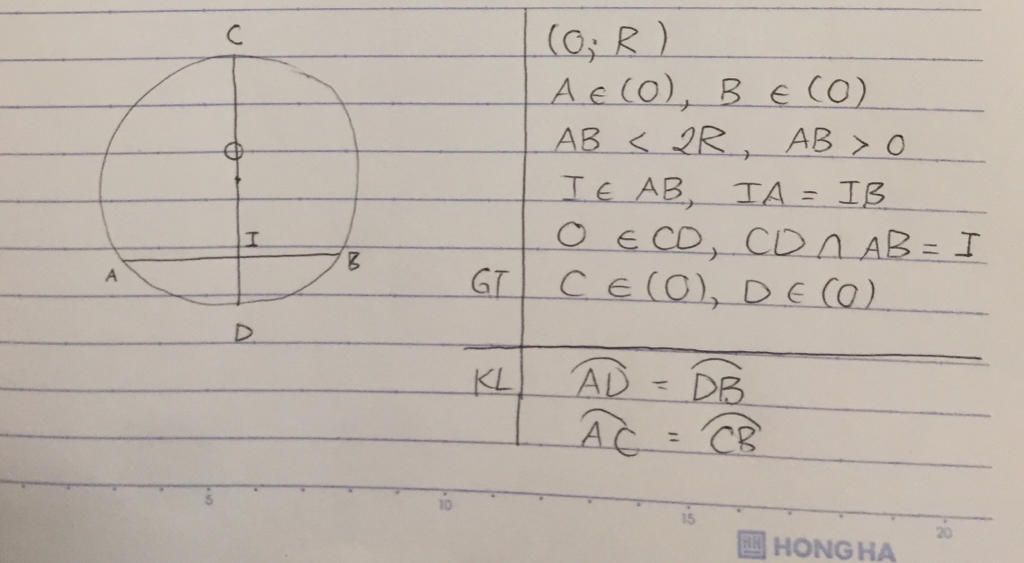 C
O
I
A
B
D
(O; R)
A ∈ (O), B ∈ (O)
AB < 2R, AB > 0
I ∈ AB, IA = IB
O ∈ CD, CD ∩ AB = I
GT C ∈ (O), D ∈ (O)
KL A͡D = D͡B
A͡C = C͡B
5 10 15 20
HH HONG HA